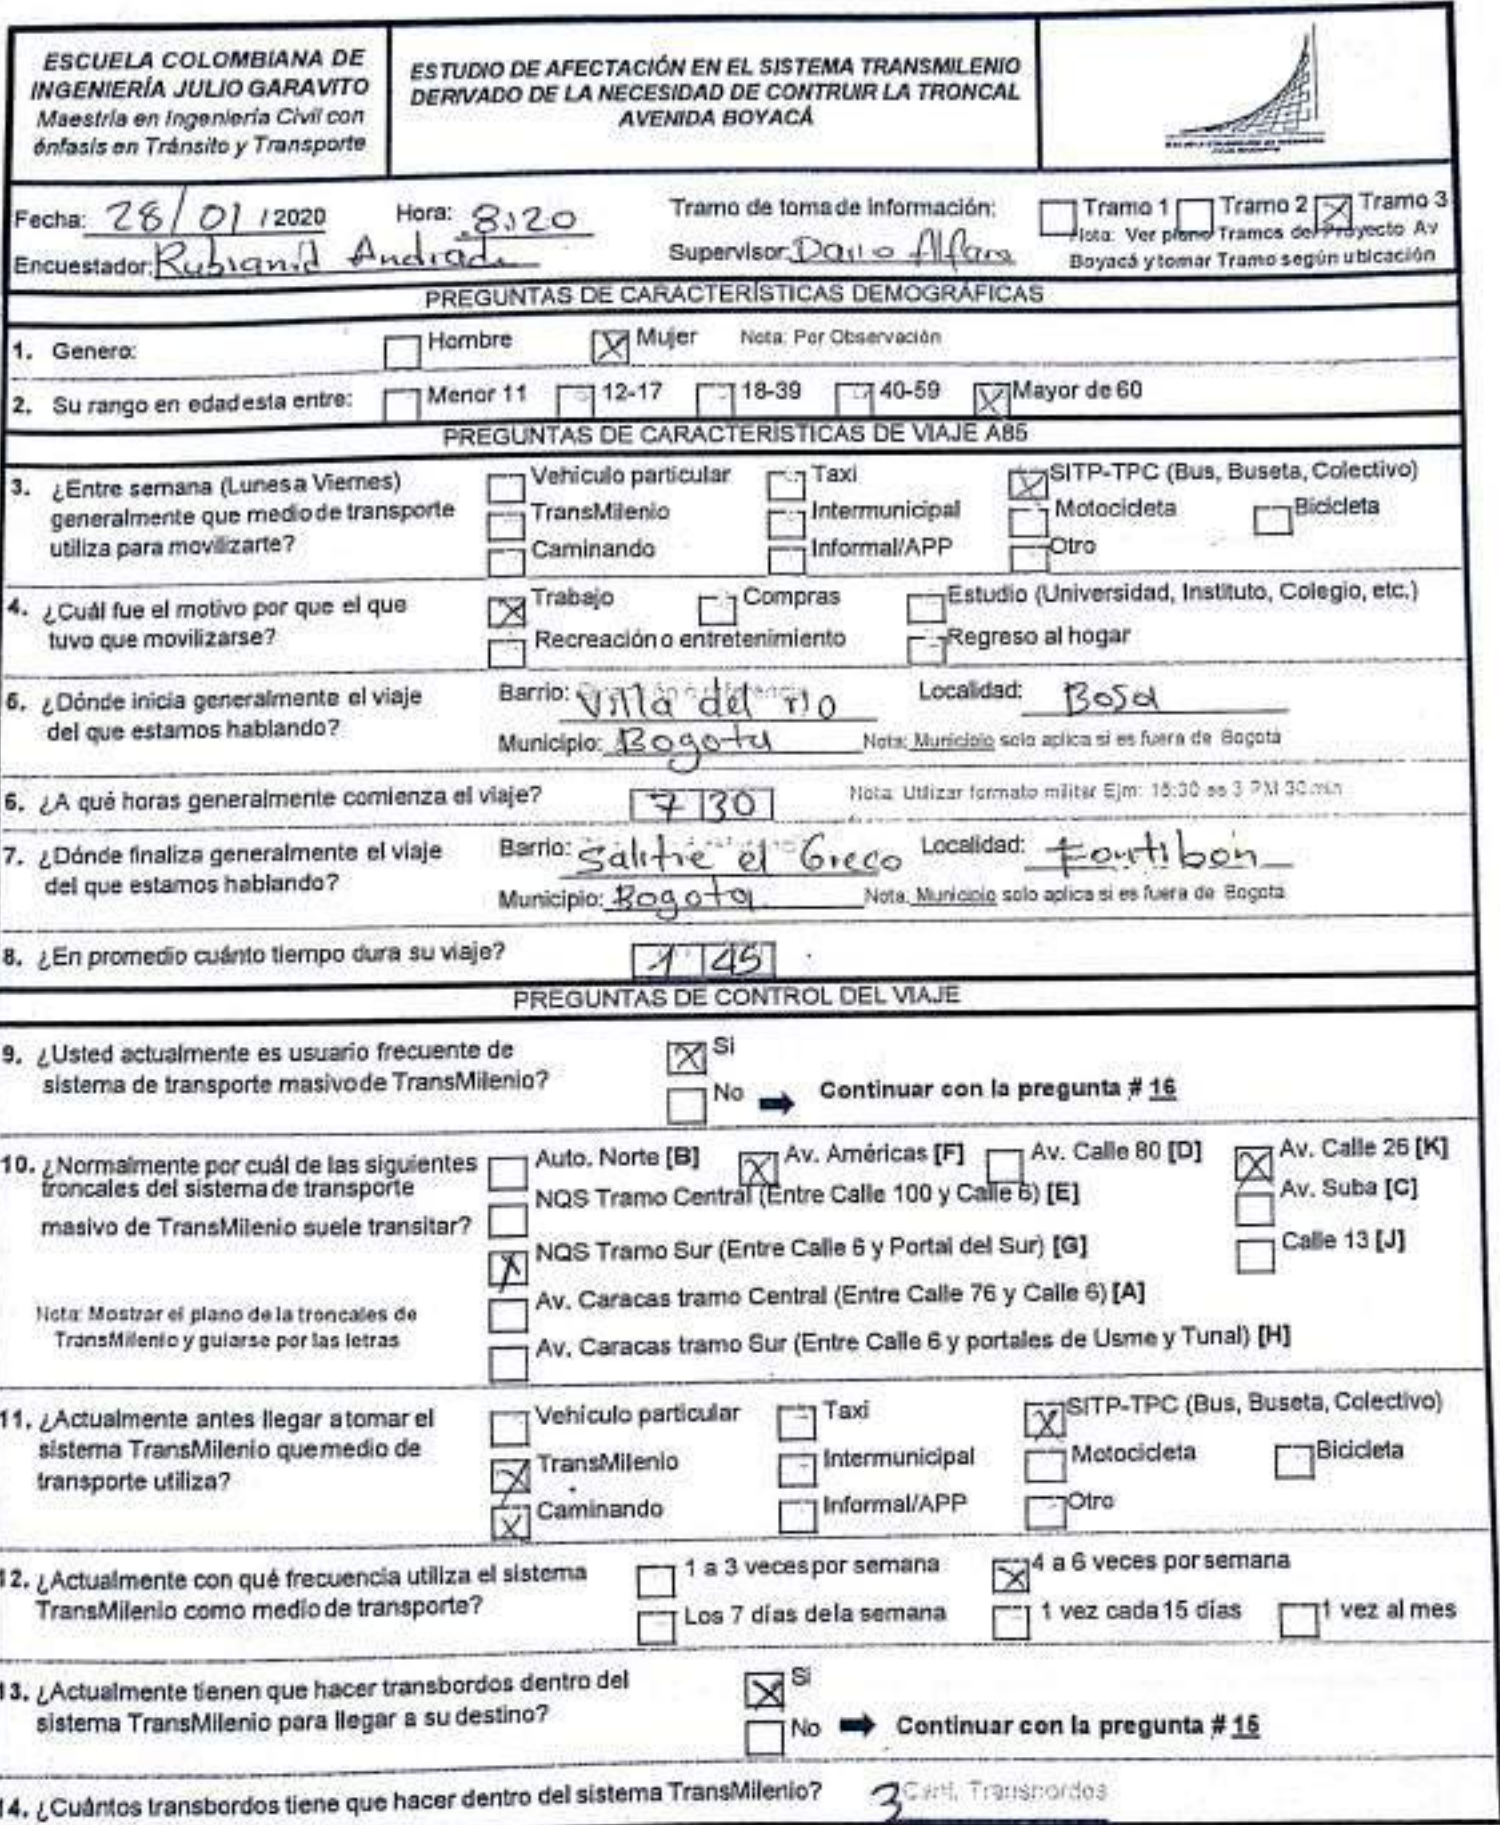 ESCUELA COLOMBIANA DE
INGENIERÍA JULIO GARAVITO
Maestría en Ingeniería Civil con
énfasis en Tránsito y Transporte
ESTUDIO DE AFECTACIÓN EN EL SISTEMA TRANSMILENIO
DERIVADO DE LA NECESIDAD DE CONTRUIR LA TRONCAL
AVENIDA BOYACÁ
Fecha: 28/01/2020 Hora: 8:20 Tramo de toma de información: Tramo 1 Tramo 2 Tramo 3
Encuestador: Rubianid Andrade Supervisor: Dario Alfaro
Nota: Ver plano Tramos del Proyecto Av
Boyacá y tomar Tramo según ubicación
PREGUNTAS DE CARACTERÍSTICAS DEMOGRÁFICAS
1. Genero: Hombre Mujer Nota: Por Observación
2. Su rango en edad esta entre: Menor 11 12-17 18-39 40-59 Mayor de 60
PREGUNTAS DE CARACTERÍSTICAS DE VIAJE A85
3. ¿Entre semana (Lunes a Viernes)
generalmente que medio de transporte
utiliza para movilizarte?
Vehículo particular Taxi SITP-TPC (Bus, Buseta, Colectivo)
TransMilenio Intermunicipal Motocicleta Bicicleta
Caminando Informal/APP Otro
4. ¿Cuál fue el motivo por que el que
tuvo que movilizarse?
Trabajo Compras Estudio (Universidad, Instituto, Colegio, etc.)
Recreación o entretenimiento Regreso al hogar
5. ¿Dónde inicia generalmente el viaje
del que estamos hablando?
Barrio: Villa del rio Localidad: Bosa
Municipio: Bogota Nota: Municipio solo aplica si es fuera de Bogotá
6. ¿A qué horas generalmente comienza el viaje? 7 30 Nota: Utilizar formato militar Ejm: 15:30 es 3 PM 30 min
7. ¿Dónde finaliza generalmente el viaje
del que estamos hablando?
Barrio: Salitre el Greco Localidad: Fontibon
Municipio: Bogota Nota: Municipio solo aplica si es fuera de Bogotá
8. ¿En promedio cuánto tiempo dura su viaje? 1 45
PREGUNTAS DE CONTROL DEL VIAJE
9. ¿Usted actualmente es usuario frecuente de
sistema de transporte masivo de TransMilenio?
Si
No Continuar con la pregunta # 16
10. ¿Normalmente por cuál de las siguientes
troncales del sistema de transporte
masivo de TransMilenio suele transitar?
Nota: Mostrar el plano de la troncales de
TransMilenio y guiarse por las letras
Auto. Norte [B] Av. Américas [F] Av. Calle 80 [D] Av. Calle 26 [K]
NQS Tramo Central (Entre Calle 100 y Calle 6) [E] Av. Suba [C]
NQS Tramo Sur (Entre Calle 6 y Portal del Sur) [G] Calle 13 [J]
Av. Caracas tramo Central (Entre Calle 76 y Calle 6) [A]
Av. Caracas tramo Sur (Entre Calle 6 y portales de Usme y Tunal) [H]
11. ¿Actualmente antes llegar a tomar el
sistema TransMilenio que medio de
transporte utiliza?
Vehículo particular Taxi SITP-TPC (Bus, Buseta, Colectivo)
TransMilenio Intermunicipal Motocicleta Bicicleta
Caminando Informal/APP Otro
12. ¿Actualmente con qué frecuencia utiliza el sistema
TransMilenio como medio de transporte?
1 a 3 veces por semana 4 a 6 veces por semana
Los 7 días de la semana 1 vez cada 15 días 1 vez al mes
13. ¿Actualmente tienen que hacer transbordos dentro del
sistema TransMilenio para llegar a su destino?
Si
No Continuar con la pregunta # 15
14. ¿Cuántos transbordos tiene que hacer dentro del sistema TransMilenio? 3 Cant. Transbordos